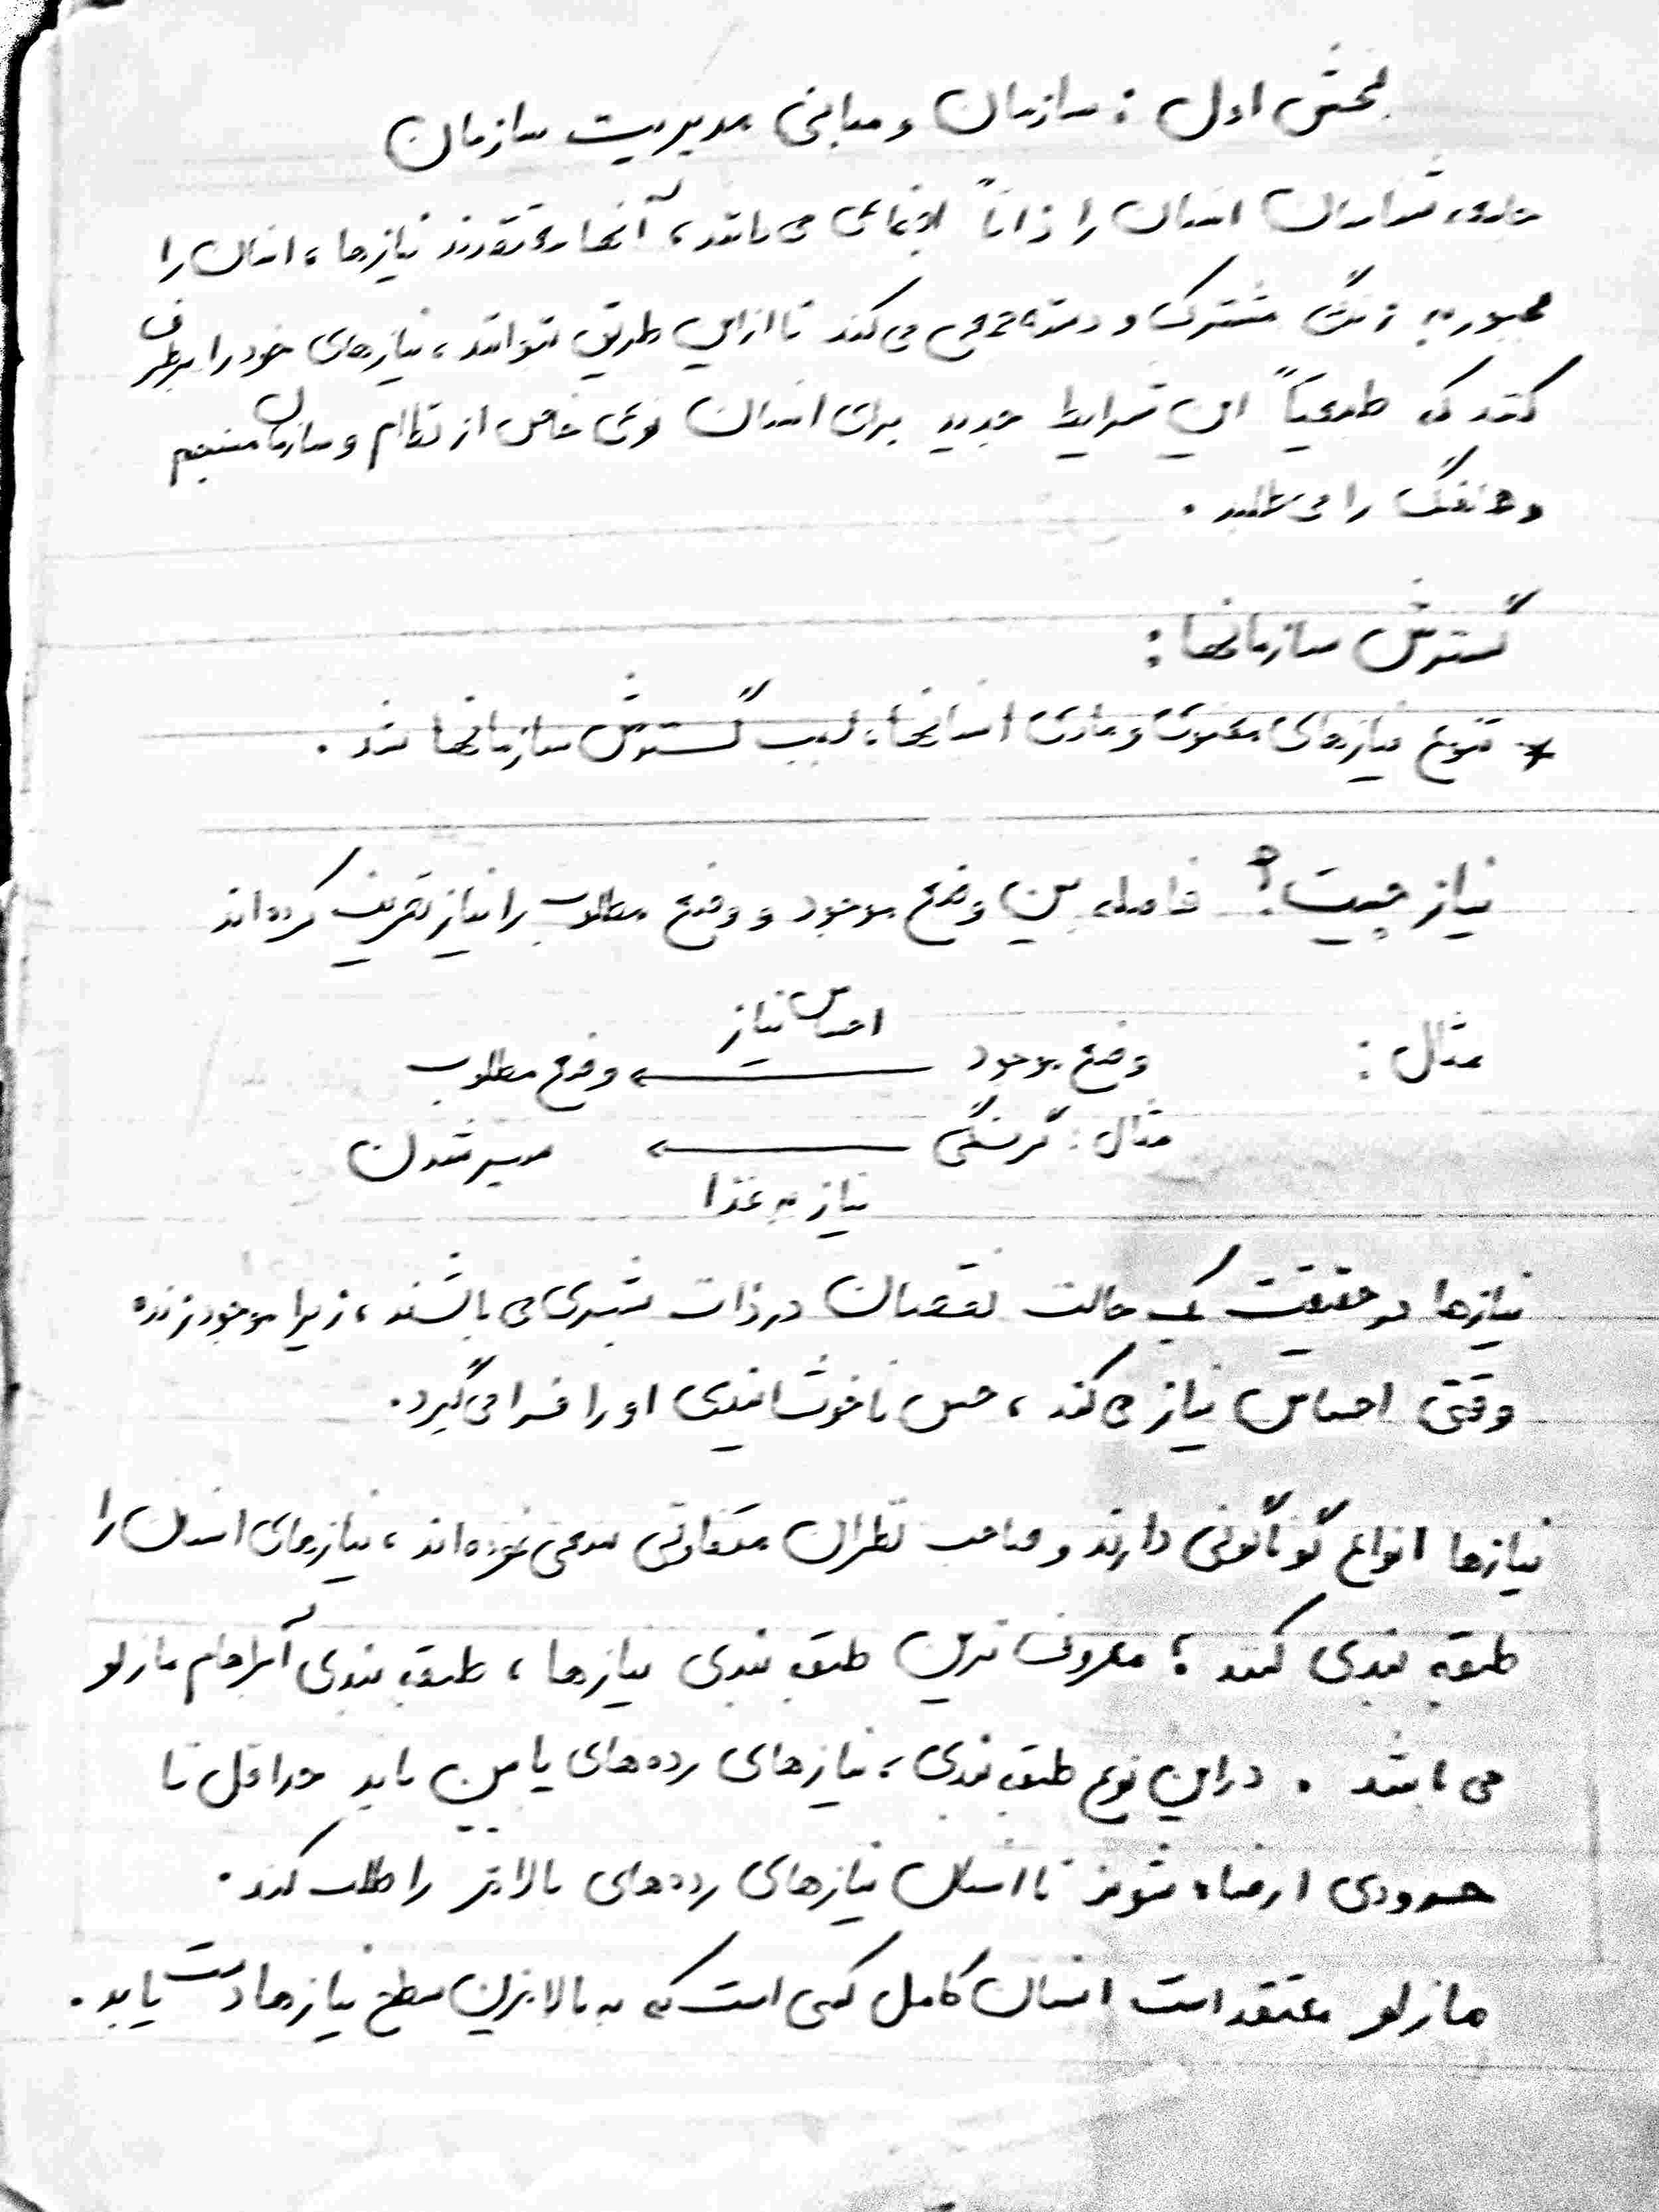 بخش اول : سازمان و مبانی مدیریت سازمان
جامعه شناسان انسان را ذاتاً اجتماعی می دانند، آنها معتقدند نیازها، انسان را
مجبور به زندگی مشترک و دسته جمعی می کند تا از این طریق بتوانند، نیازهای خود را برطرف
کنند که طبیعتاً این شرایط جدید برای انسان نوعی خاص از نظام و سازمان منسجم
و هماهنگ را می طلبد.
گسترش سازمانها :
* تنوع نیازهای معنوی و مادی انسانها، سبب گسترش سازمانها شد.
نیاز چیست؟ فاصله بین وضع موجود و وضع مطلوب را نیاز تعریف کرده اند
احساس نیاز
مثال : وضع موجود ← وضع مطلوب
مثال : گرسنگی ← سیر شدن
نیاز به غذا
نیازها در حقیقت یک حالت نقصان در ذات بشری می باشند، زیرا موجود زنده
وقتی احساس نیاز می کند، حس ناخوشایندی او را فرا می گیرد.
نیازها انواع گوناگونی دارند و صاحب نظران متفاوتی سعی نموده اند، نیازهای انسان را
طبقه بندی کنند ؛ معروف ترین طبقه بندی نیازها، طبقه بندی آبراهام مازلو
می باشد. در این نوع طبقه بندی، نیازهای رده های پایین باید حداقل تا
حدودی ارضاء شوند تا انسان نیازهای رده های بالاتر را طلب کند.
مازلو معتقد است انسان کامل کسی است که به بالاترین سطح نیازها دست یابد.